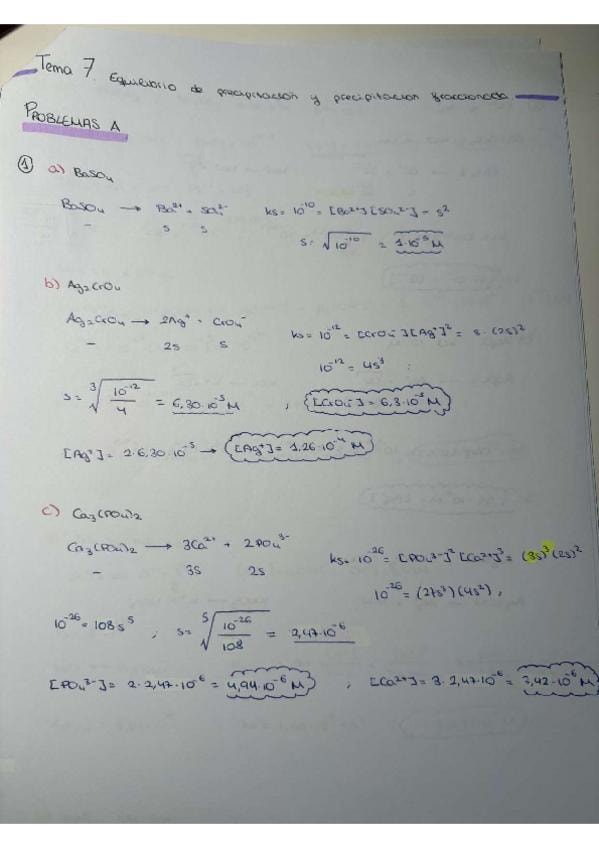 Tema 7. Equilibrio de precipitación y precipitación fraccionada
PROBLEMAS A
① a) BaSO₄
BaSO₄ → Ba²⁺ + SO₄²⁻ ks = 10⁻¹⁰ = [Ba²⁺][SO₄²⁻] = s²
- s s
s = √10⁻¹⁰ = 1·10⁻⁵ M
b) Ag₂CrO₄
Ag₂CrO₄ → 2Ag⁺ + CrO₄⁻ ks = 10⁻¹² = [CrO₄⁻][Ag⁺]² = s·(2s)²
- 2s s
10⁻¹² = 4s³
s = ³√(10⁻¹²/4) = 6,30·10⁻⁵ M ; [CrO₄⁻] = 6,3·10⁻⁵ M
[Ag⁺] = 2·6,30·10⁻⁵ → [Ag⁺] = 1,26·10⁻⁴ M
c) Ca₃(PO₄)₂
Ca₃(PO₄)₂ → 3Ca²⁺ + 2PO₄³⁻ ks = 10⁻²⁶ = [PO₄³⁻]²[Ca²⁺]³ = (3s)³(2s)²
- 3s 2s
10⁻²⁶ = (27s³)(4s²),
10⁻²⁶ = 108s⁵ ; s = ⁵√(10⁻²⁶/108) = 2,47·10⁻⁶
[PO₄³⁻] = 2·2,47·10⁻⁶ = 4,94·10⁻⁶ M ; [Ca²⁺] = 3·2,47·10⁻⁶ = 7,42·10⁻⁶ M